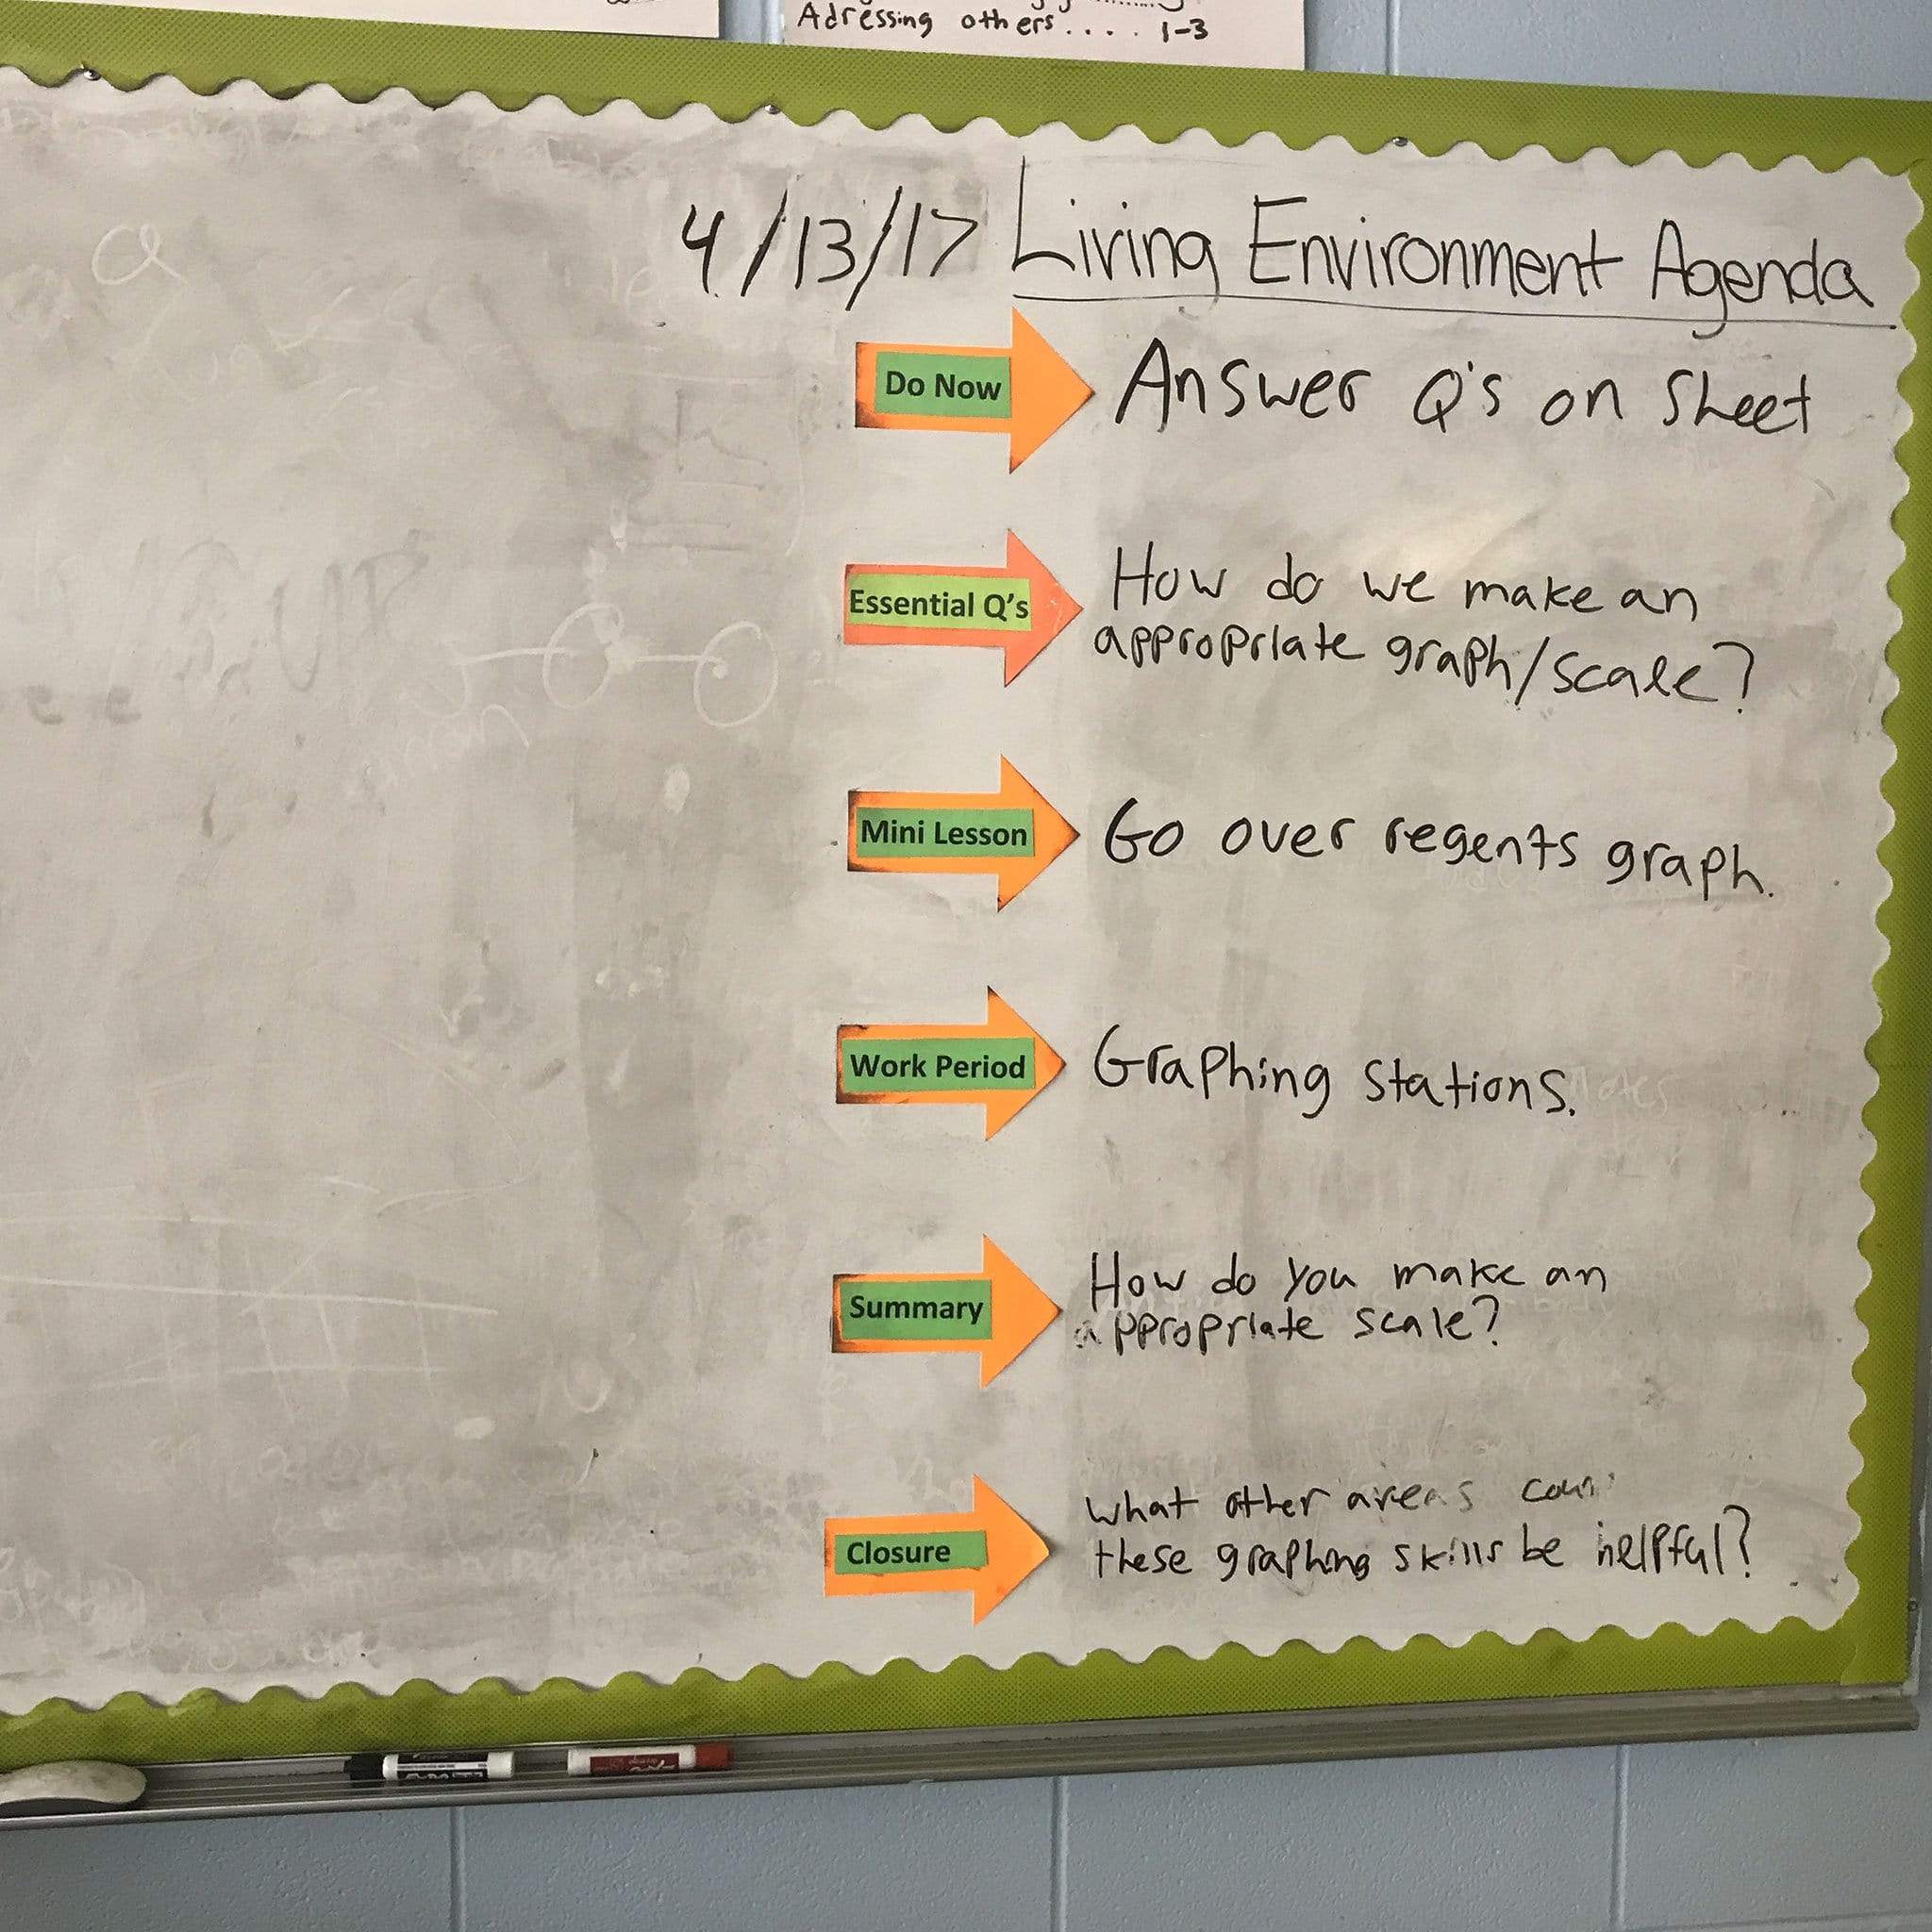 Adressing others.... 1-3
4/13/17 Living Environment Agenda
Do Now Answer Q's on Sheet
Essential Q's How do we make an
appropriate graph/scale?
Mini Lesson Go over regents graph.
Work Period Graphing Stations.
Summary How do you make an
appropriate scale?
Closure What other areas
these graphing skills be helpful?